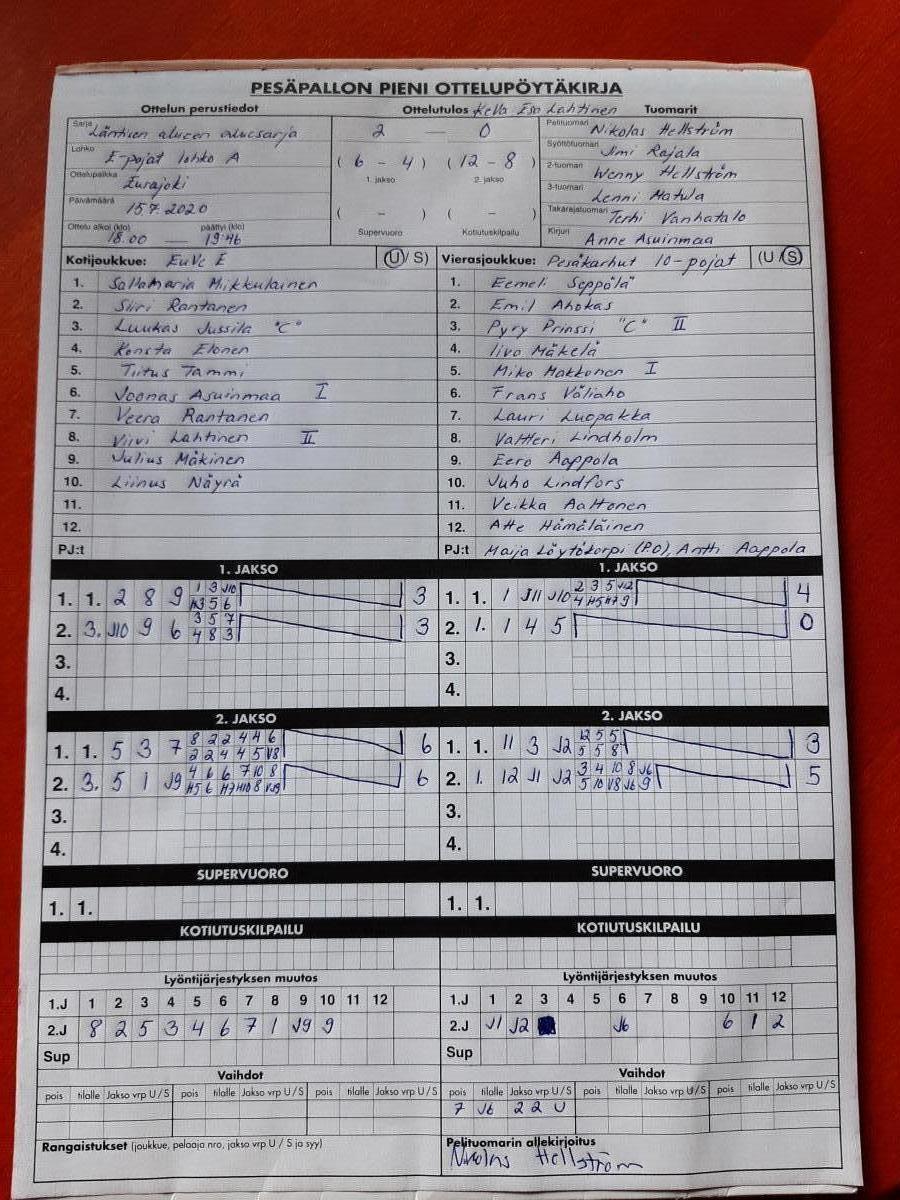 PESÄPALLON PIENI OTTELUPÖYTÄKIRJA
Ottelun perustiedot Ottelutulos Tuomarit
Sarja Läntisen alueen aluesarja
Lohko E-pojat lohko A
Ottelupaikka Eurajoki
Päivämäärä 15.7.2020
Ottelu alkoi (klo) päättyi (klo)
18.00 — 19.46
2 — 0
( 6 - 4 ) ( 12 - 8 )
1. jakso 2. jakso
( - ) ( - )
Supervuoro Kotiutuskilpailu
Pelituomari Nikolas Hellström
Syöttötuomari Jimi Rajala
2-tuomari Wenny Hellström
3-tuomari Lenni Matula
Takarajatuomari Terhi Vanhatalo
Kirjuri Anne Asuinmaa
Kotijoukkue: EuVe E (U / S)
1. Sallamaria Miikkulainen
2. Siiri Rantanen
3. Luukas Jussila "C"
4. Konsta Elonen
5. Tiitus Tammi
6. Joonas Asuinmaa I
7. Veera Rantanen
8. Viivi Lahtinen II
9. Julius Mäkinen
10. Liinus Näyrä
11.
12.
PJ:t
Vierasjoukkue: Pesäkarhut 10-pojat (U / S)
1. Eemeli Seppälä
2. Emil Ahokas
3. Pyry Prinssi "C" II
4. Iivo Mäkelä
5. Miko Makkonen I
6. Frans Väliaho
7. Lauri Luopakka
8. Valtteri Lindholm
9. Eero Aappola
10. Juho Lindfors
11. Veikka Aaltonen
12. Atte Hämäläinen
PJ:t Maija Löytökorpi (PO), Antti Aappola
1. JAKSO
1. 1. 2 8 9 1 3 J10 3
H3 5 6
2. 3. J10 9 6 3 5 7 3
4 8 3
3.
4.
1. JAKSO
1. 1. 1 J11 J10 2 3 5 J12 4
4 H5 H7 9
2. 1. 1 4 5 0
3.
4.
2. JAKSO
1. 1. 5 3 7 8 2 2 4 4 6 6
2 2 4 4 5 V8
2. 3. 5 1 J9 4 6 6 7 10 8 6
H5 6 H7 H10 8 VJ9
3.
4.
2. JAKSO
1. 1. 11 3 J2 12 5 5 3
5 5 8
2. 1. 12 J1 J2 3 4 10 8 J6 5
5 10 V8 J6 9
3.
4.
SUPERVUORO SUPERVUORO
1. 1. 1. 1.
KOTIUTUSKILPAILU KOTIUTUSKILPAILU
Lyöntijärjestyksen muutos
1.J 1 2 3 4 5 6 7 8 9 10 11 12
2.J 8 2 5 3 4 6 7 1 J9 9
Sup
Lyöntijärjestyksen muutos
1.J 1 2 3 4 5 6 7 8 9 10 11 12
2.J J1 J2 J6 6 1 2
Sup
Vaihdot
pois tilalle Jakso vrp U / S pois tilalle Jakso vrp U / S pois tilalle Jakso vrp U / S
Vaihdot
pois tilalle Jakso vrp U / S pois tilalle Jakso vrp U / S pois tilalle Jakso vrp U / S
7 J6 2 2 U
Rangaistukset (joukkue, pelaaja nro, jakso vrp U / S ja syy)
Pelituomarin allekirjoitus
Nikolas Hellström